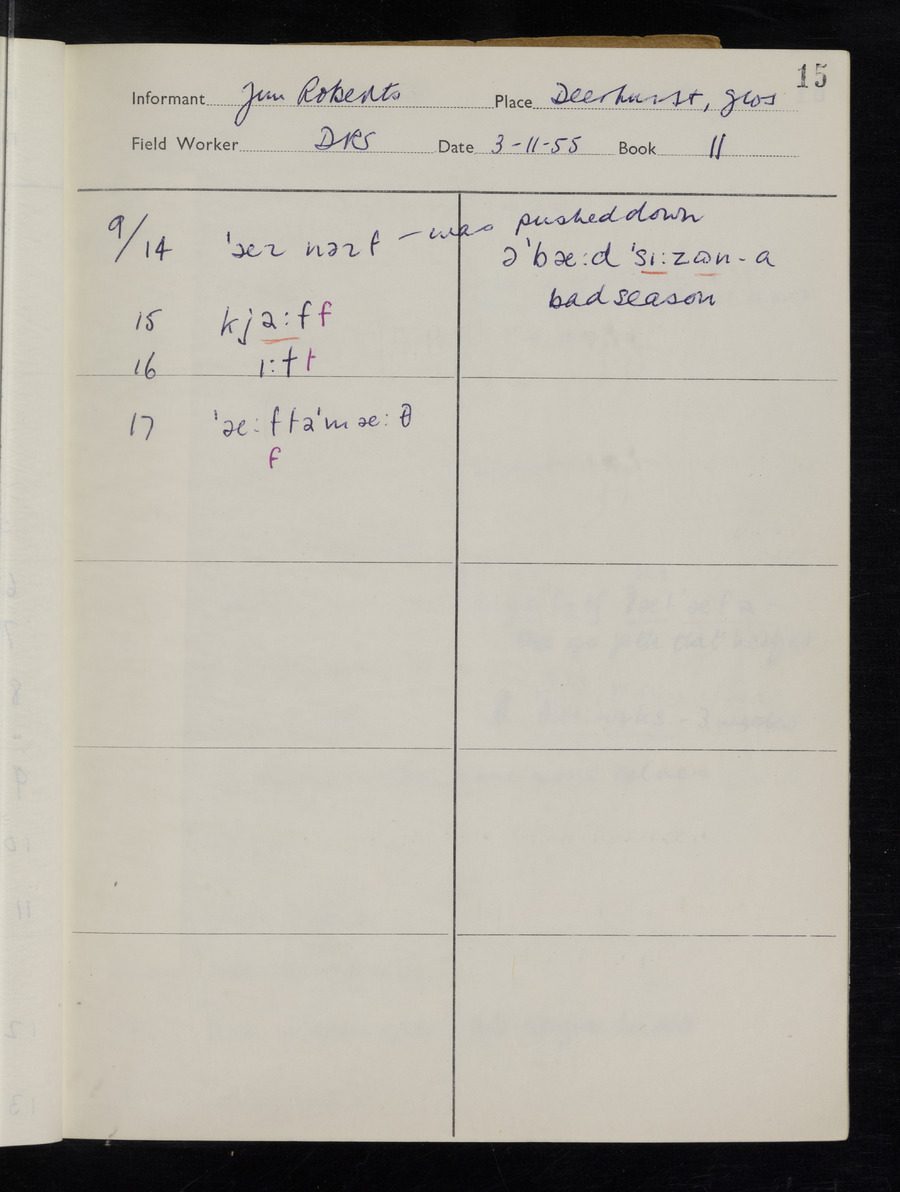 15
Informant Jim Roberts Place Deerhurst, Glos
Field Worker DRS Date 3-11-55 Book II
9/14 — was pushed down
ə'bæ:d 'sɪ:zən - a
bad season
15 kja:f f
16 ɪ:t t
17 'æ:ftə'mæ:θ
f